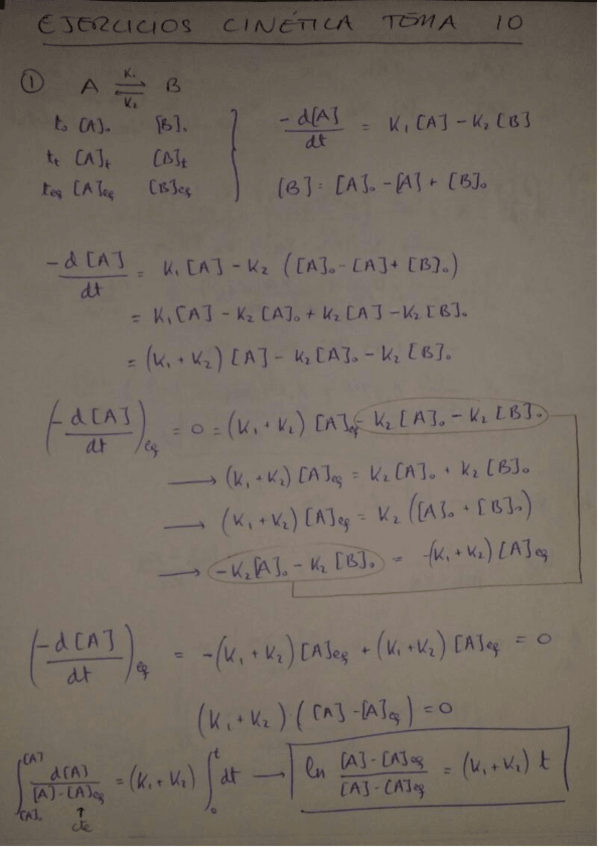 EJERCICIOS CINÉTICA TEMA 10
① A ⇌ B
K₁
K₂
t₀ [A]₀ [B]₀
-d[A]/dt = K₁[A] - K₂[B]
tₜ [A]ₜ [B]ₜ
teq [A]eq [B]eq
[B] = [A]₀ - [A] + [B]₀
-d[A]/dt = K₁[A] - K₂([A]₀ - [A] + [B]₀)
= K₁[A] - K₂[A]₀ + K₂[A] - K₂[B]₀
= (K₁ + K₂)[A] - K₂[A]₀ - K₂[B]₀
(-d[A]/dt)eq = 0 = (K₁ + K₂)[A]eq - K₂[A]₀ - K₂[B]₀
→ (K₁ + K₂)[A]eq = K₂[A]₀ + K₂[B]₀
→ (K₁ + K₂)[A]eq = K₂([A]₀ + [B]₀)
→ -K₂[A]₀ - K₂[B]₀ = -(K₁ + K₂)[A]eq
(-d[A]/dt)eq = -(K₁ + K₂)[A]eq + (K₁ + K₂)[A]eq = 0
(K₁ + K₂)([A] - [A]eq) = 0
∫[A]₀^[A] d[A]/([A] - [A]eq) = (K₁ + K₂) ∫₀^t dt → ln ([A] - [A]eq)/([A] - [A]eq) = (K₁ + K₂) t
↑
cte